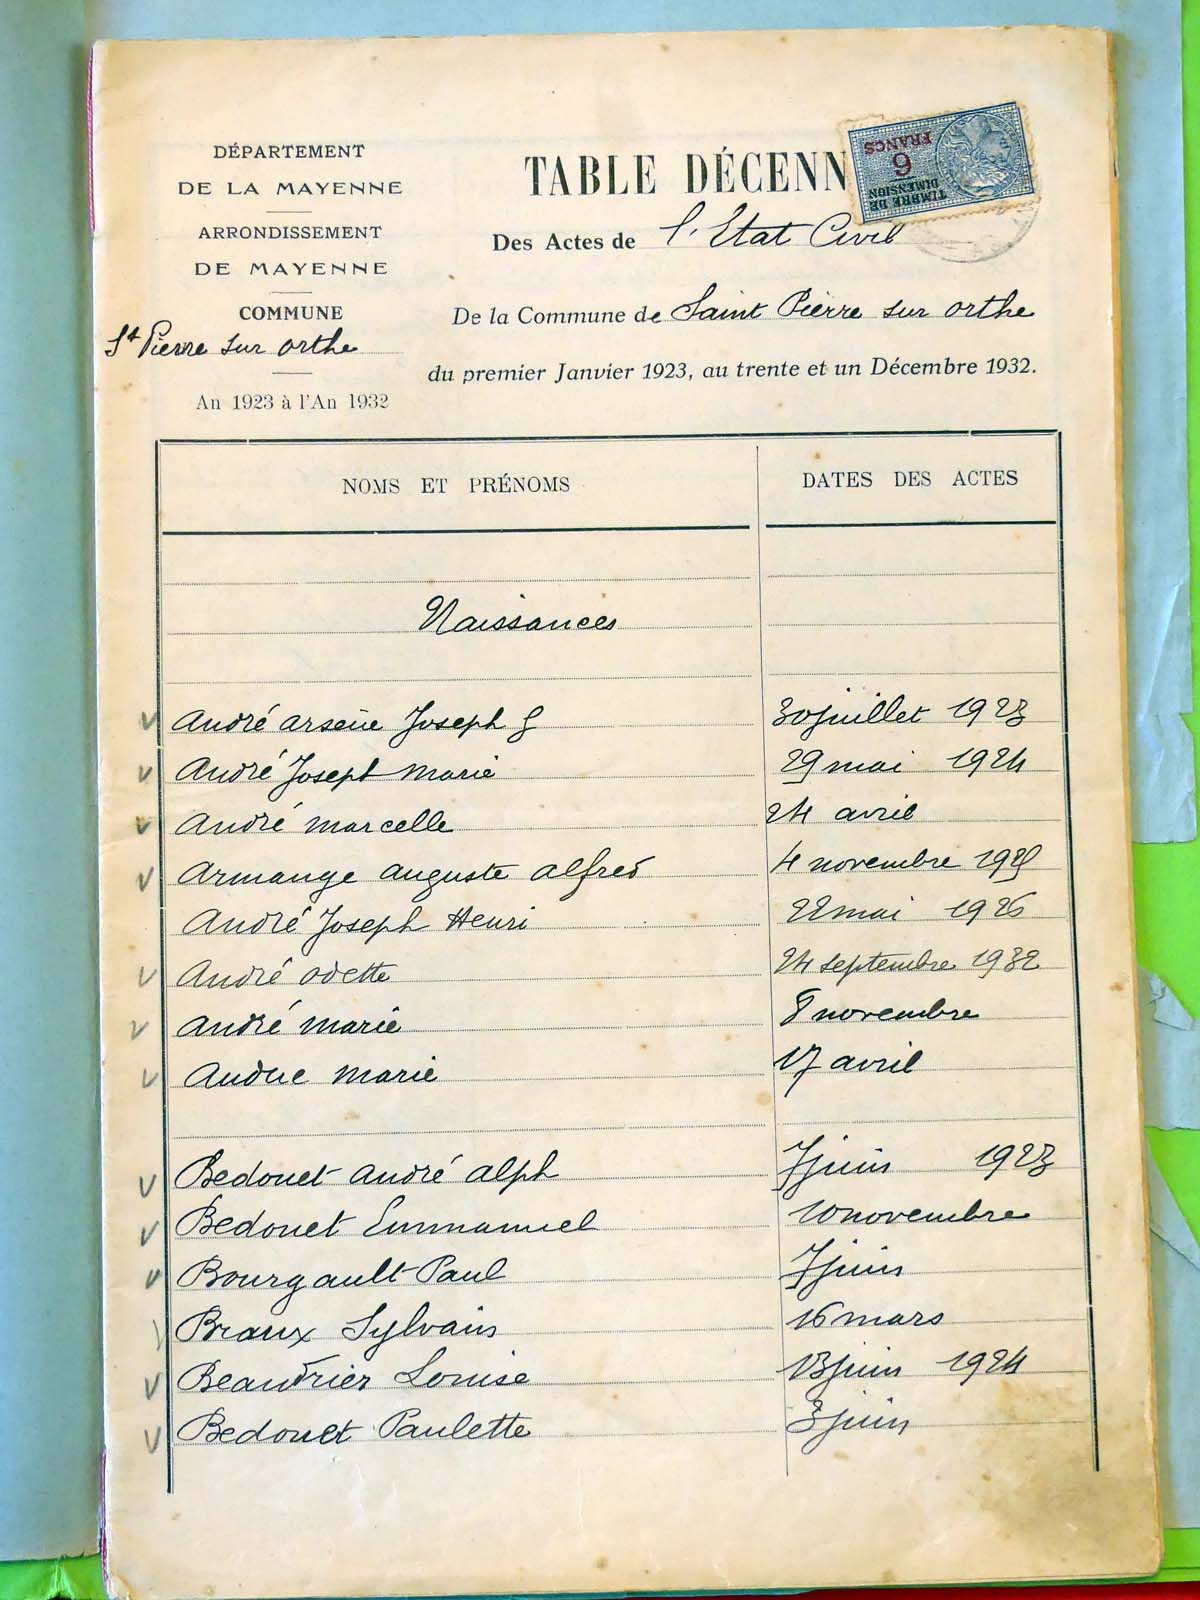 DÉPARTEMENT
DE LA MAYENNE
ARRONDISSEMENT
DE MAYENNE
COMMUNE
St Pierre sur orthe
An 1923 à l'An 1932
TABLE DÉCENN
TIMBRE DE
DIMENSION
6
FRANCS
Des Actes de l'Etat Civil
De la Commune de Saint Pierre sur orthe
du premier Janvier 1923, au trente et un Décembre 1932.
NOMS ET PRÉNOMS DATES DES ACTES
Naissances
André arsène Joseph G 30 juillet 1923
André Joseph Marie 29 mai 1924
André Marcelle 24 avril
Armange auguste alfred 4 novembre
André Joseph Henri 22 mai 1926
André odette 24 septembre 1932
André Marie 8 novembre
Marie 17 avril
Bedouet André alph 7 juin 1923
Bedouet Emmanuel 10 novembre
Bourgault Paul 7 juin
Braux Sylvain 16 mars
Beaudrier Louise 13 juin 1924
Bedouet Paulette 3 juin